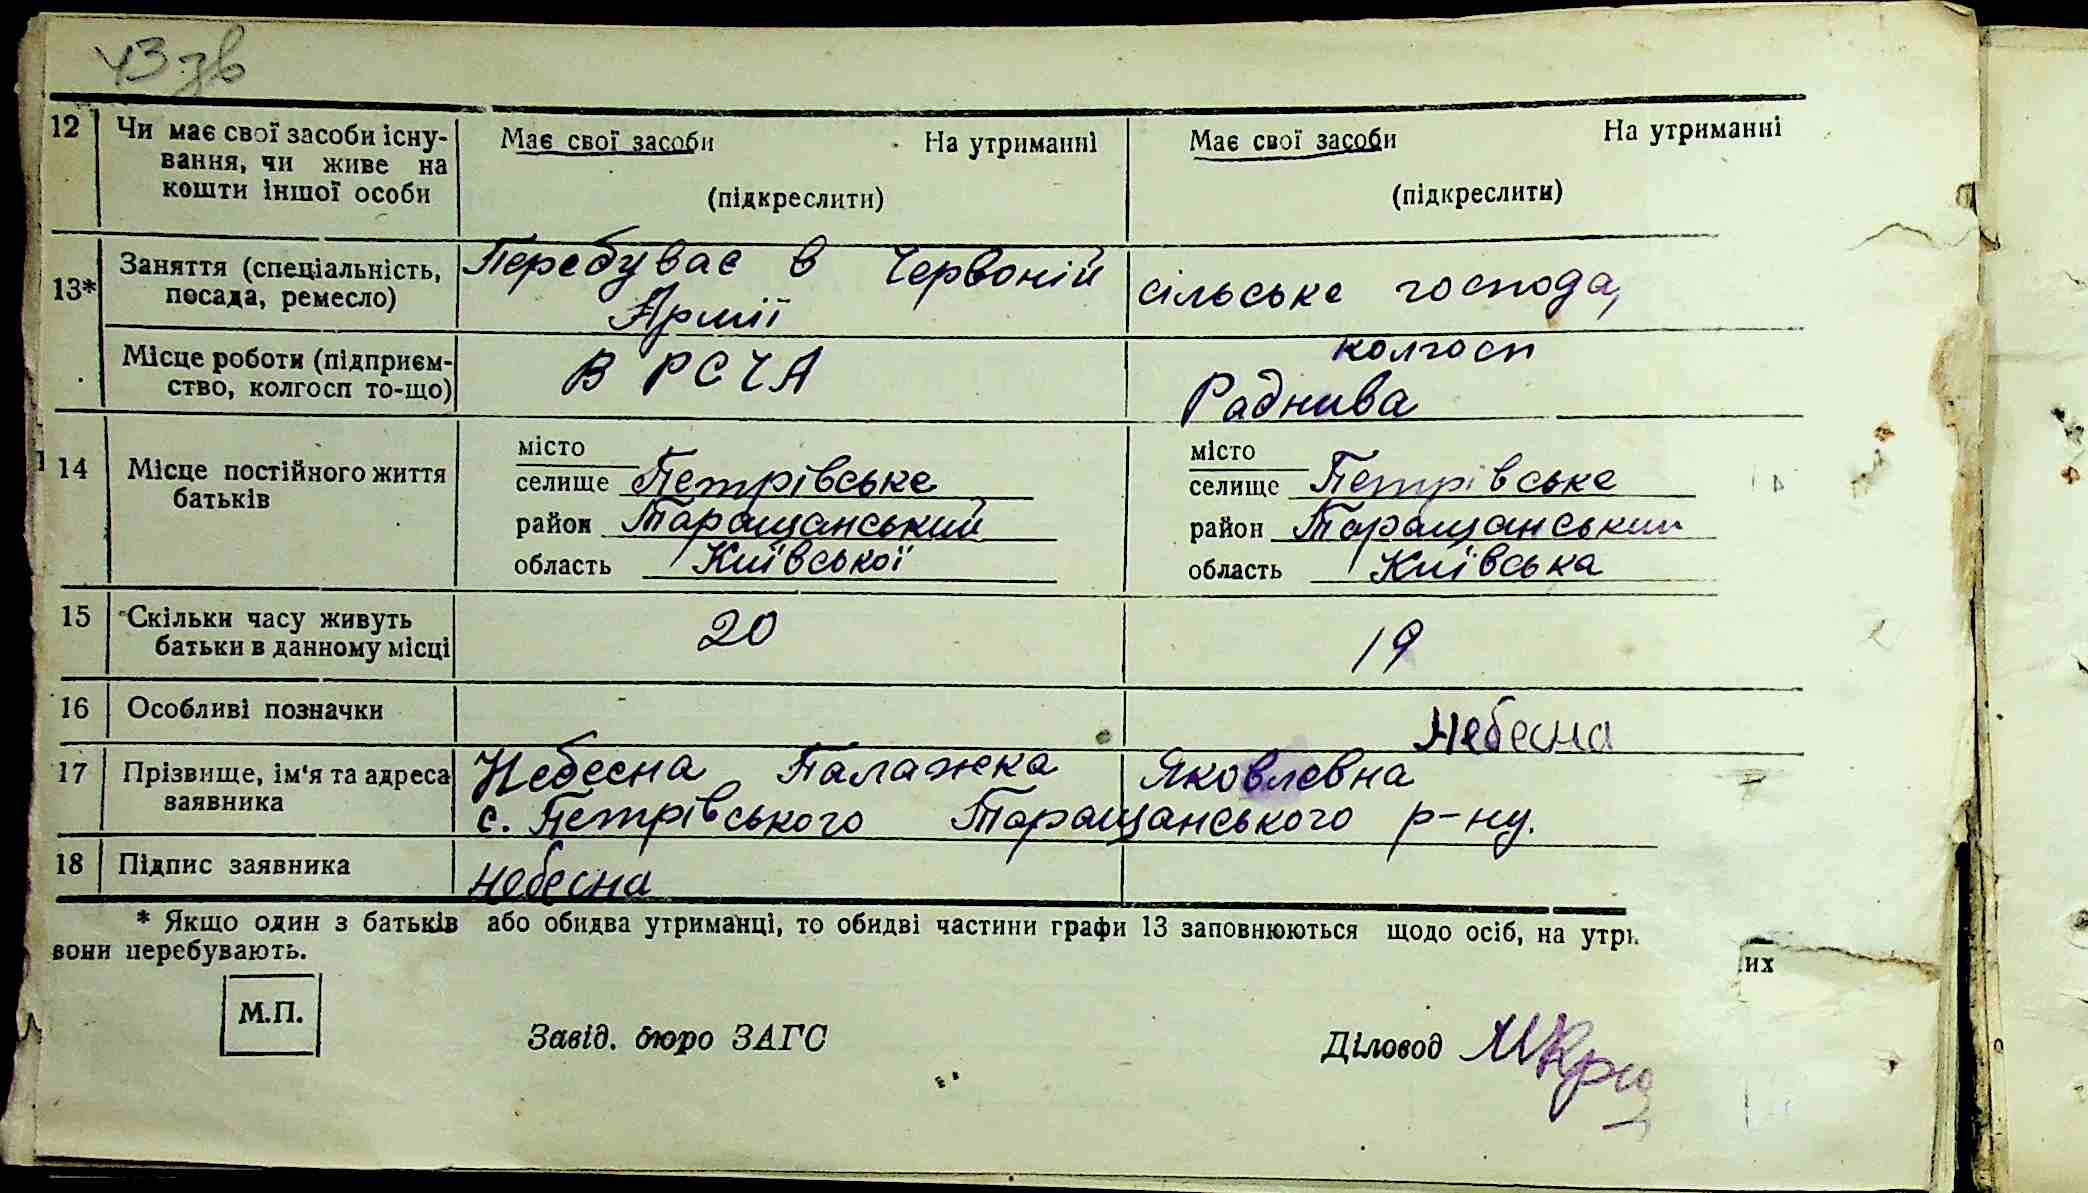 43 зв
12 Чи має свої засоби існу- Має свої засоби На утриманні Має свої засоби На утриманні
вання, чи живе на
кошти іншої особи (підкреслити) (підкреслити)
13* Заняття (спеціальність, Перебуває в Червоній сільське господа,
посада, ремесло) Армії
Місце роботи (підприєм- В РСЧА колгосп
ство, колгосп то-що) Раднива
14 Місце постійного життя місто місто
батьків селище Петрівське селище Петрівське
район Таращанський район Таращанський
область Київської область Київська
15 Скільки часу живуть 20 19
батьки в данному місці
16 Особливі позначки Небесна
17 Прізвище, ім'я та адреса Небесна Палажка Яковлєвна
заявника с. Петрівського Таращанського р-ну.
18 Підпис заявника Небесна
* Якщо один з батьків або обидва утриманці, то обидві частини графи 13 заповнюються щодо осіб, на утри
вони перебувають. их
М.П.
Завід. бюро ЗАГС Діловод